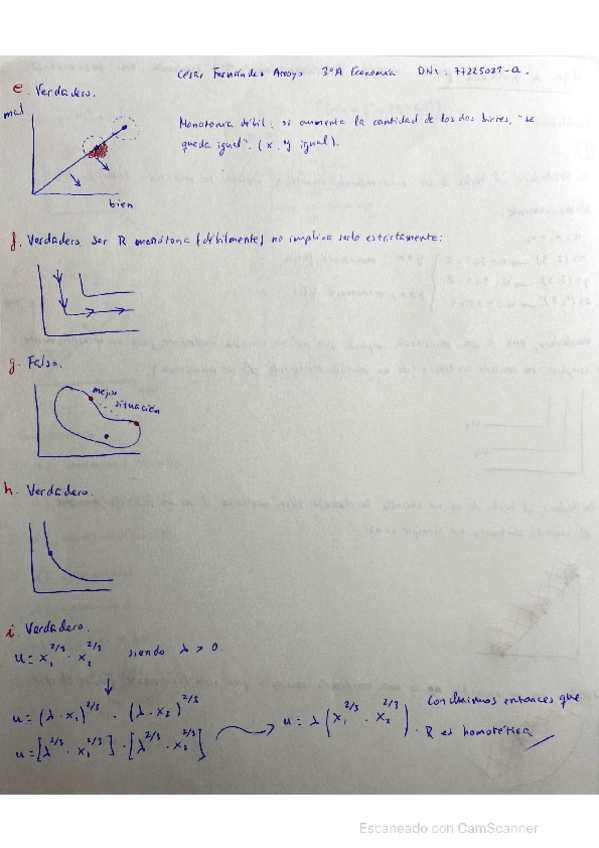 César Fernández Arroyo 3ºA Economía DNI: 77225027-Q.
e. Verdadero.
mal
bien
Monotonía débil: si aumenta la cantidad de los dos bienes, "se
queda igual". (x, y igual).
f. Verdadero. Ser R monótona (débilmente) no implica serlo estrictamente:
g. Falso.
mejor
situación
h. Verdadero.
i. Verdadero.
u = x₁^2/3 · x₂^2/3 siendo λ > 0.
u = (λ · x₁)^2/3 · (λ · x₂)^2/3
u = [λ^2/3 · x₁^2/3] · [λ^2/3 · x₂^2/3]
u = λ (x₁^2/3 · x₂^2/3).
Concluimos entonces que
R es homotética
Escaneado con CamScanner